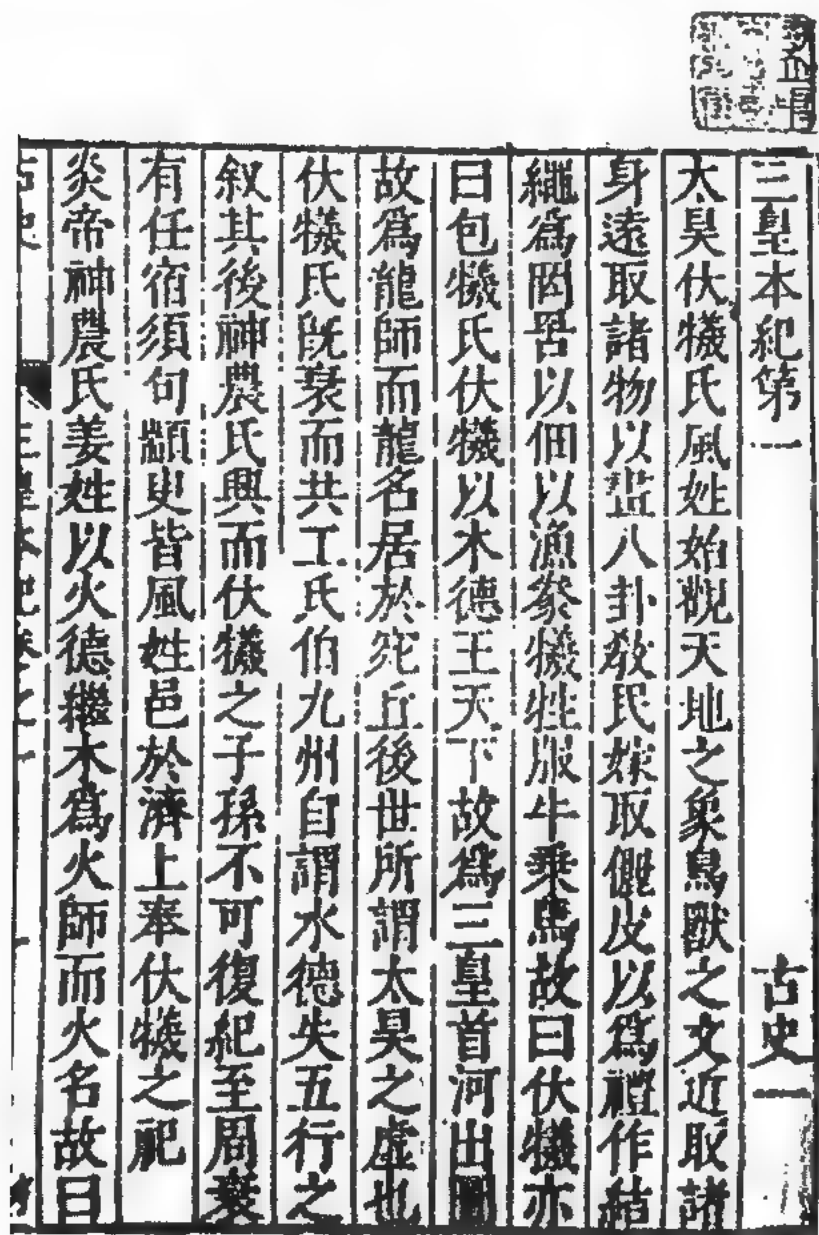 三皇本紀第一 古史一
太昊伏犧氏風姓始觀天地之象鳥獸之文近取諸
身遠取諸物以畫八卦教民嫁取儷皮以爲禮作結
繩爲罔罟以佃以漁豢犧牲服牛乗馬故曰伏犧亦
曰包犧氏伏犧以木德王天下故爲三皇首河出圖
故爲龍師而龍名居於宛丘後世所謂太昊之虛也
伏犧氏旣衰而共工氏伯九州自謂水德失五行之
叙其後神農氏興而伏犧之子孫不可復紀至周衰
有任宿須句顓臾皆風姓邑於濟上奉伏犧之祀
炎帝神農氏姜姓以火德繼木爲火師而火名故曰
古史 三皇本紀卷之一